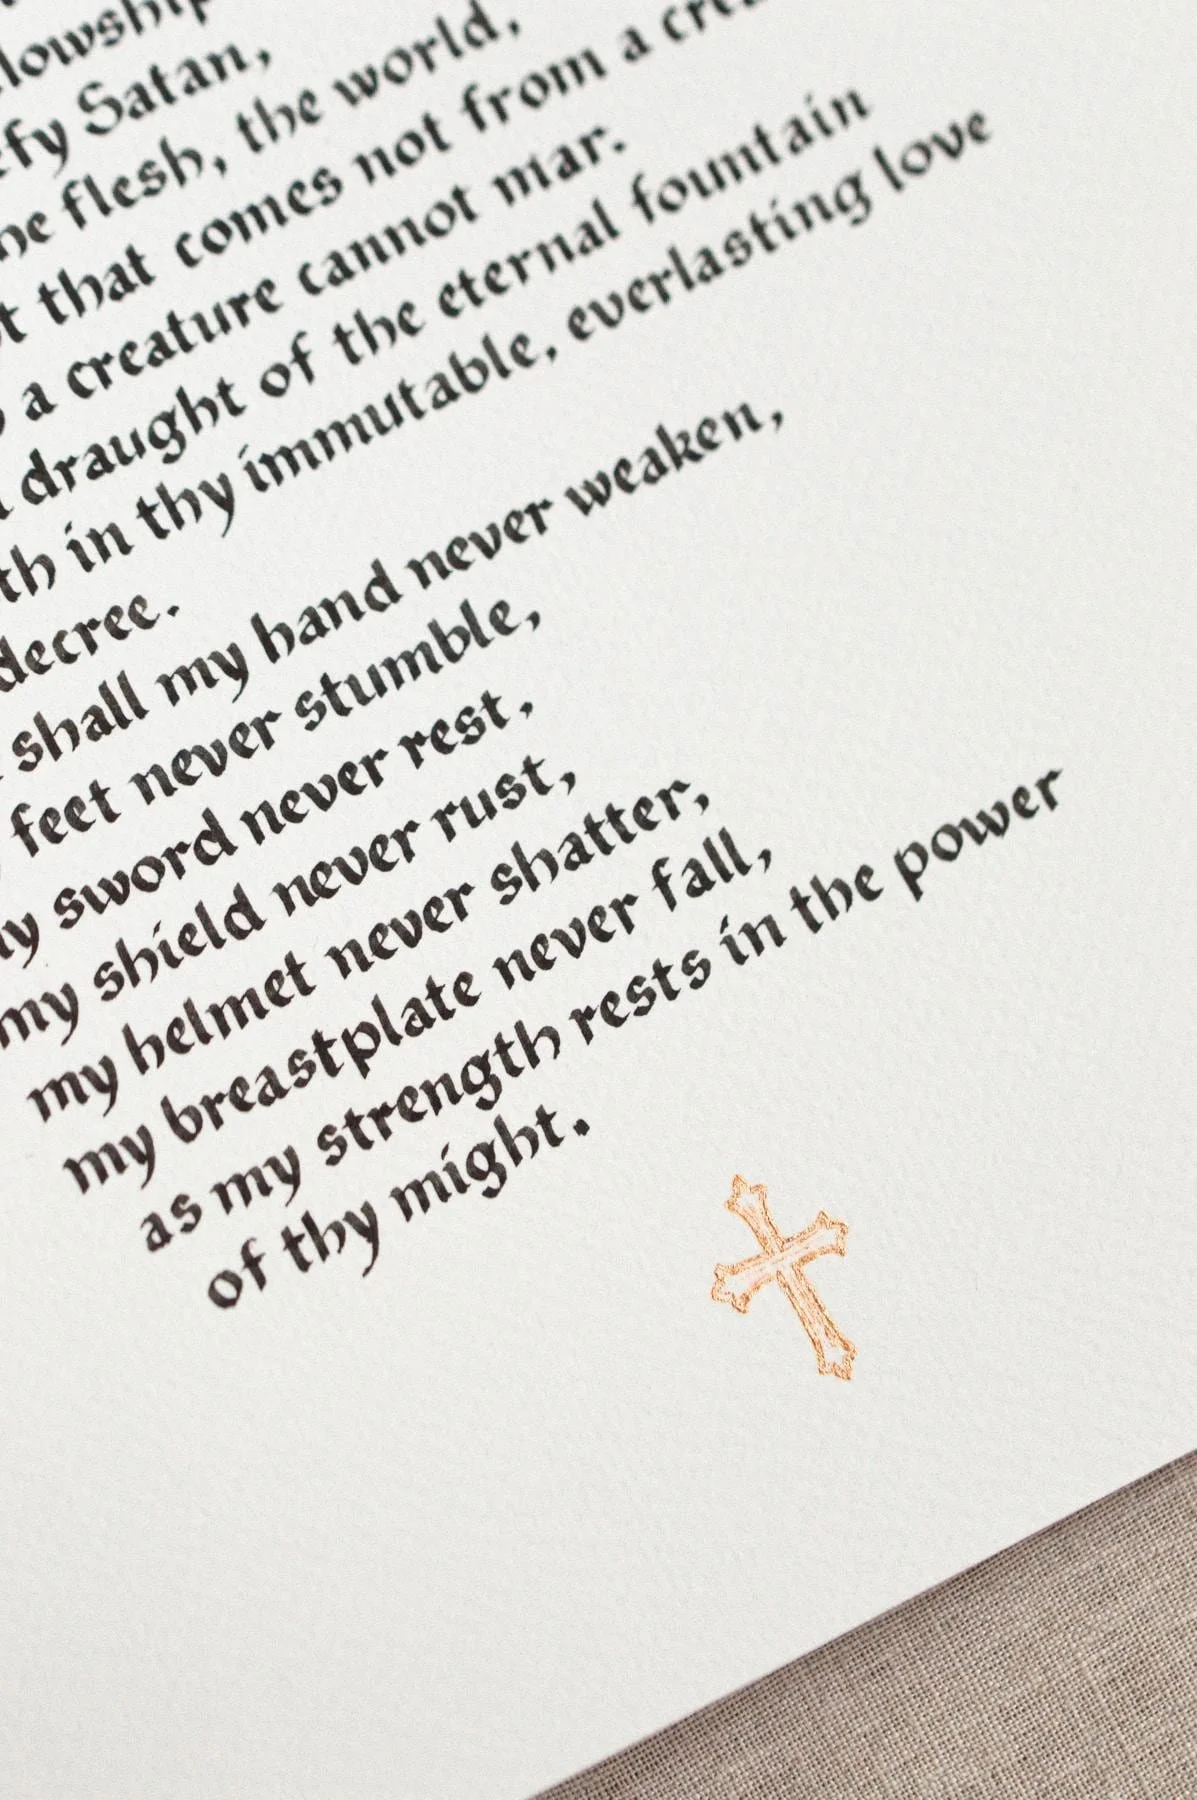 Satan,
flesh, the world,
that comes not from a
a creature cannot mar.
draught of the eternal fountain
in thy immutable, everlasting love
decree.
shall my hand never weaken,
feet never stumble,
sword never rest,
my shield never rust,
my helmet never shatter,
my breastplate never fall,
as my strength rests in the power
of thy might.